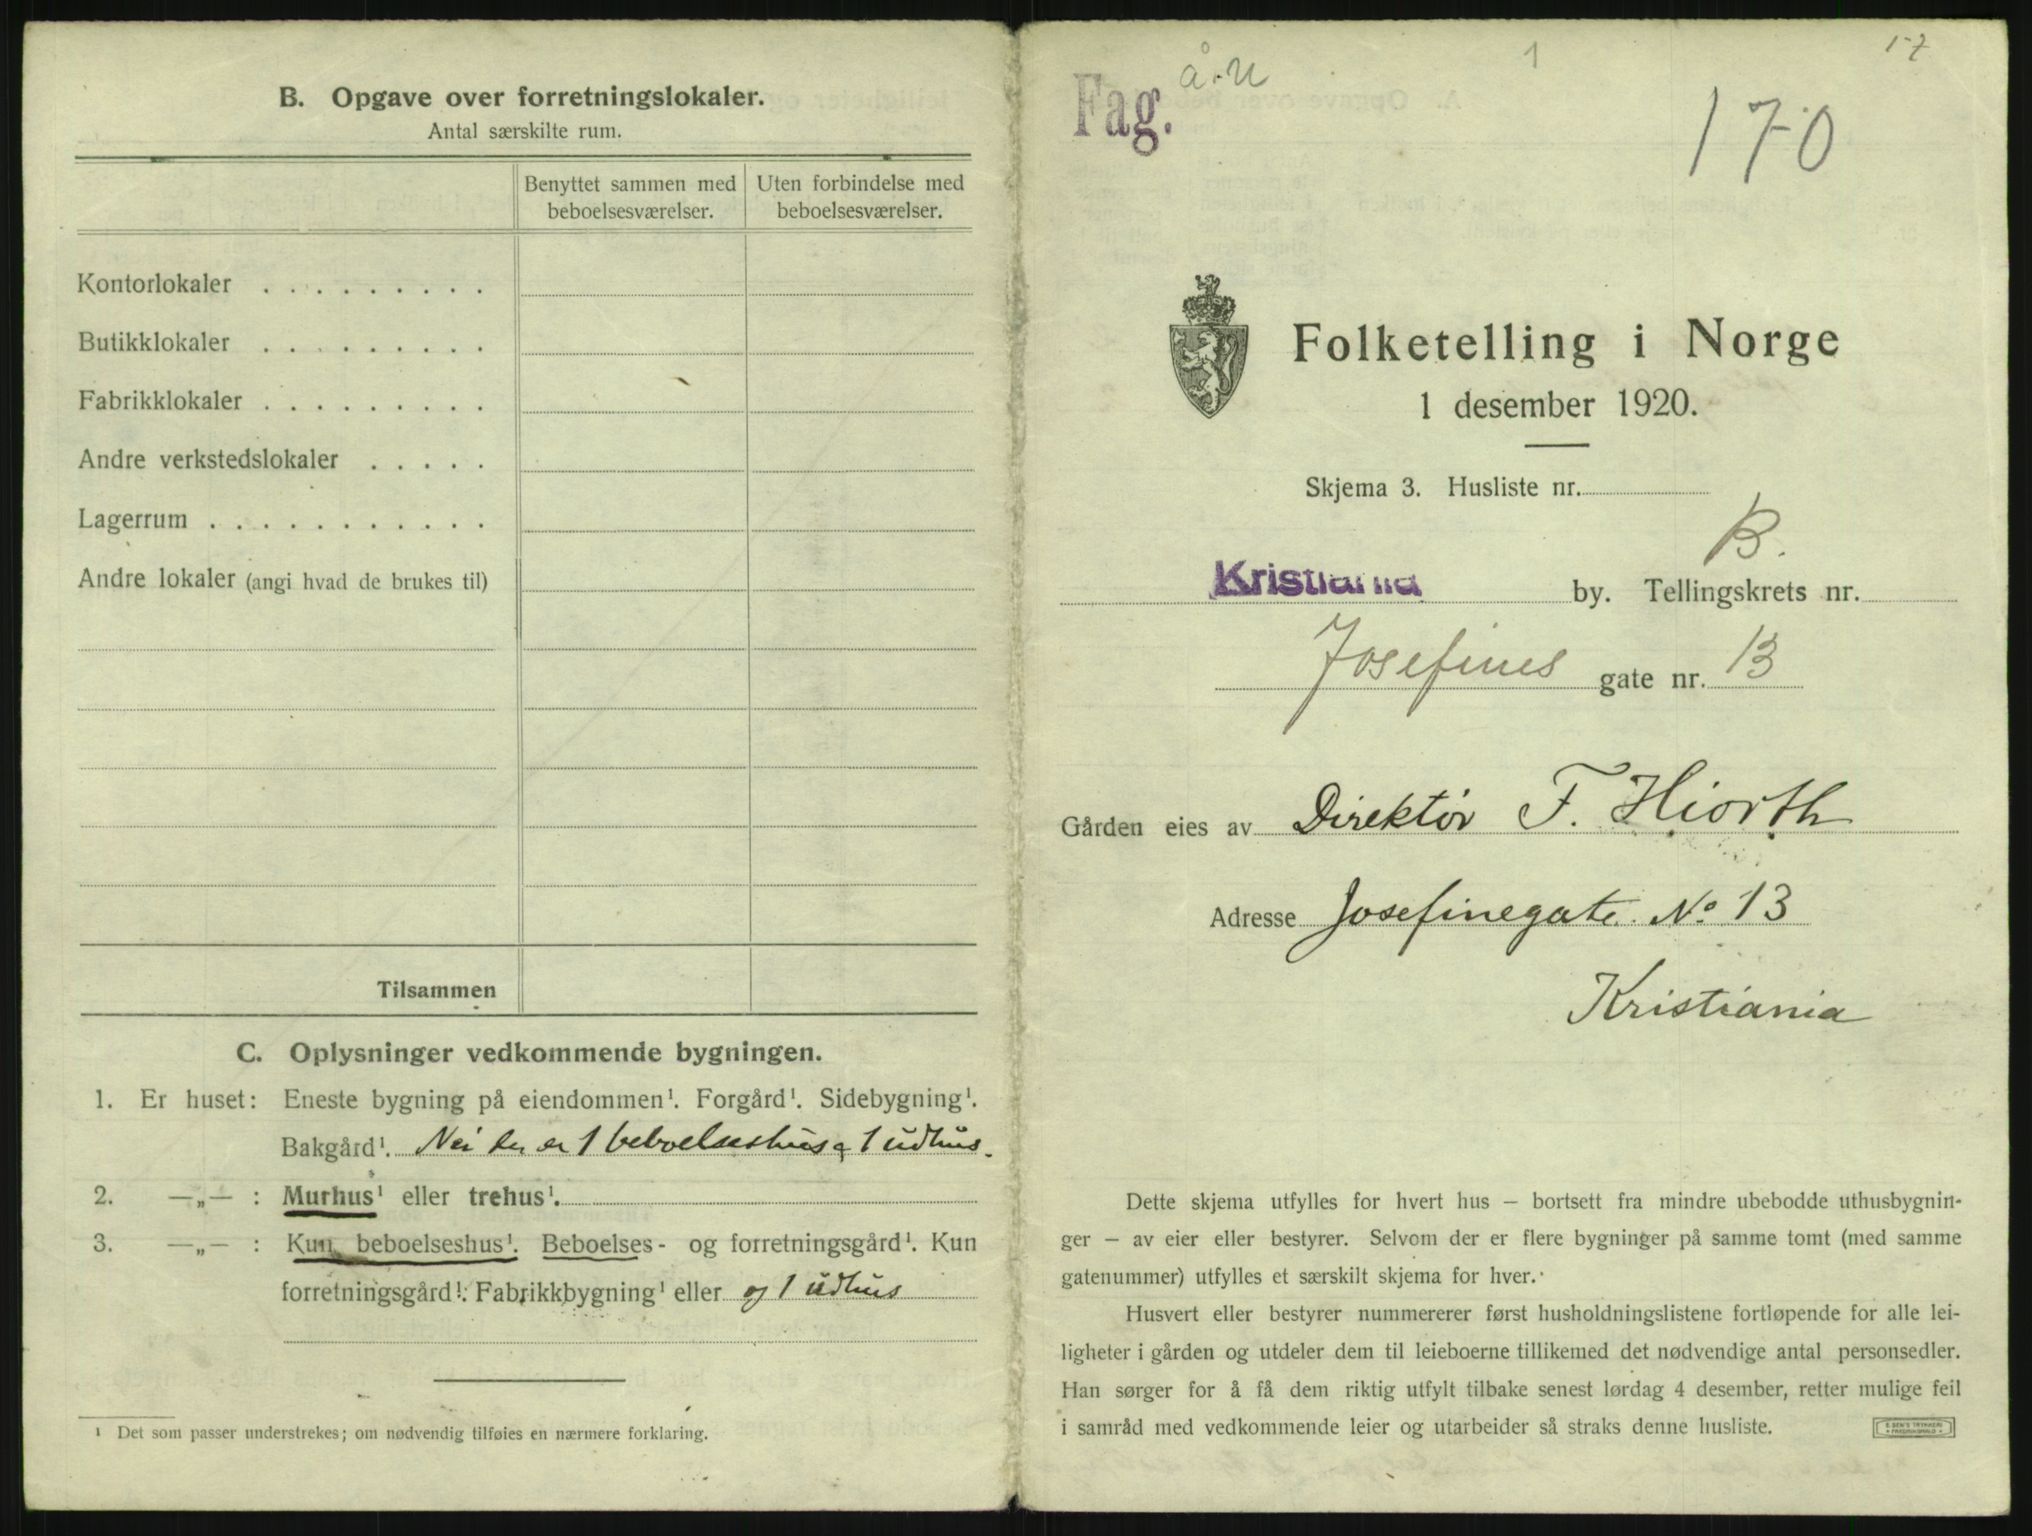 B. Opgave over forretningslokaler.
Antal særskilte rum.
Benyttet sammen med beboelsesværelser.
Uten forbindelse med beboelsesværelser.
Kontorlokaler . . . . . . . . .
Butikklokaler . . . . . . . . .
Fabrikklokaler . . . . . . . . .
Andre verkstedslokaler . . . . .
Lagerrum . . . . . . . . . . .
Andre lokaler (angi hvad de brukes til)
Tilsammen
C. Oplysninger vedkommende bygningen.
1. Er huset: Eneste bygning på eiendommen¹. Forgård¹. Sidebygning¹.
Bakgård¹. Nei der er 1 beboelseshus og 1 udhus.
2. —„— : Murhus¹ eller trehus¹.
3. —„— : Kun beboelseshus¹. Beboelses- og forretningsgård¹. Kun
forretningsgård¹. Fabrikkbygning¹ eller og 1 udhus
¹ Det som passer understrekes; om nødvendig tilføies en nærmere forklaring.
Fag. å.u 1 17
170
Folketelling i Norge
1 desember 1920.
Skjema 3. Husliste nr.
B.
Kristiania by. Tellingskrets nr.
Josefines gate nr. 13
Gården eies av Direktör F. Hiorth
Adresse Josefinegate No 13
Kristiania
Dette skjema utfylles for hvert hus – bortsett fra mindre ubebodde uthusbygnin-
ger – av eier eller bestyrer. Selvom der er flere bygninger på samme tomt (med samme
gatenummer) utfylles et særskilt skjema for hver.
Husvert eller bestyrer nummererer først husholdningslistene fortløpende for alle lei-
ligheter i gården og utdeler dem til leieboerne tillikemed det nødvendige antal personsedler.
Han sørger for å få dem riktig utfylt tilbake senest lørdag 4 desember, retter mulige feil
i samråd med vedkommende leier og utarbeider så straks denne husliste.